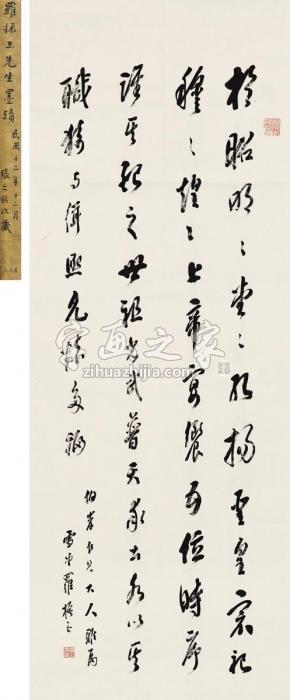 於昭明〻堂〻孔揚聖皇宗祀
穆〻煌〻上帝宴饗五位時序
誰其配之世祖光武普天率土各以其
職猗与緝熙允懷多福
伯岸仁兄大人雅屬
雪堂羅振玉
羅振玉先生墨蹟
民國十二年十二月
張之銘珍藏
字画之家
zihuazhijia.com